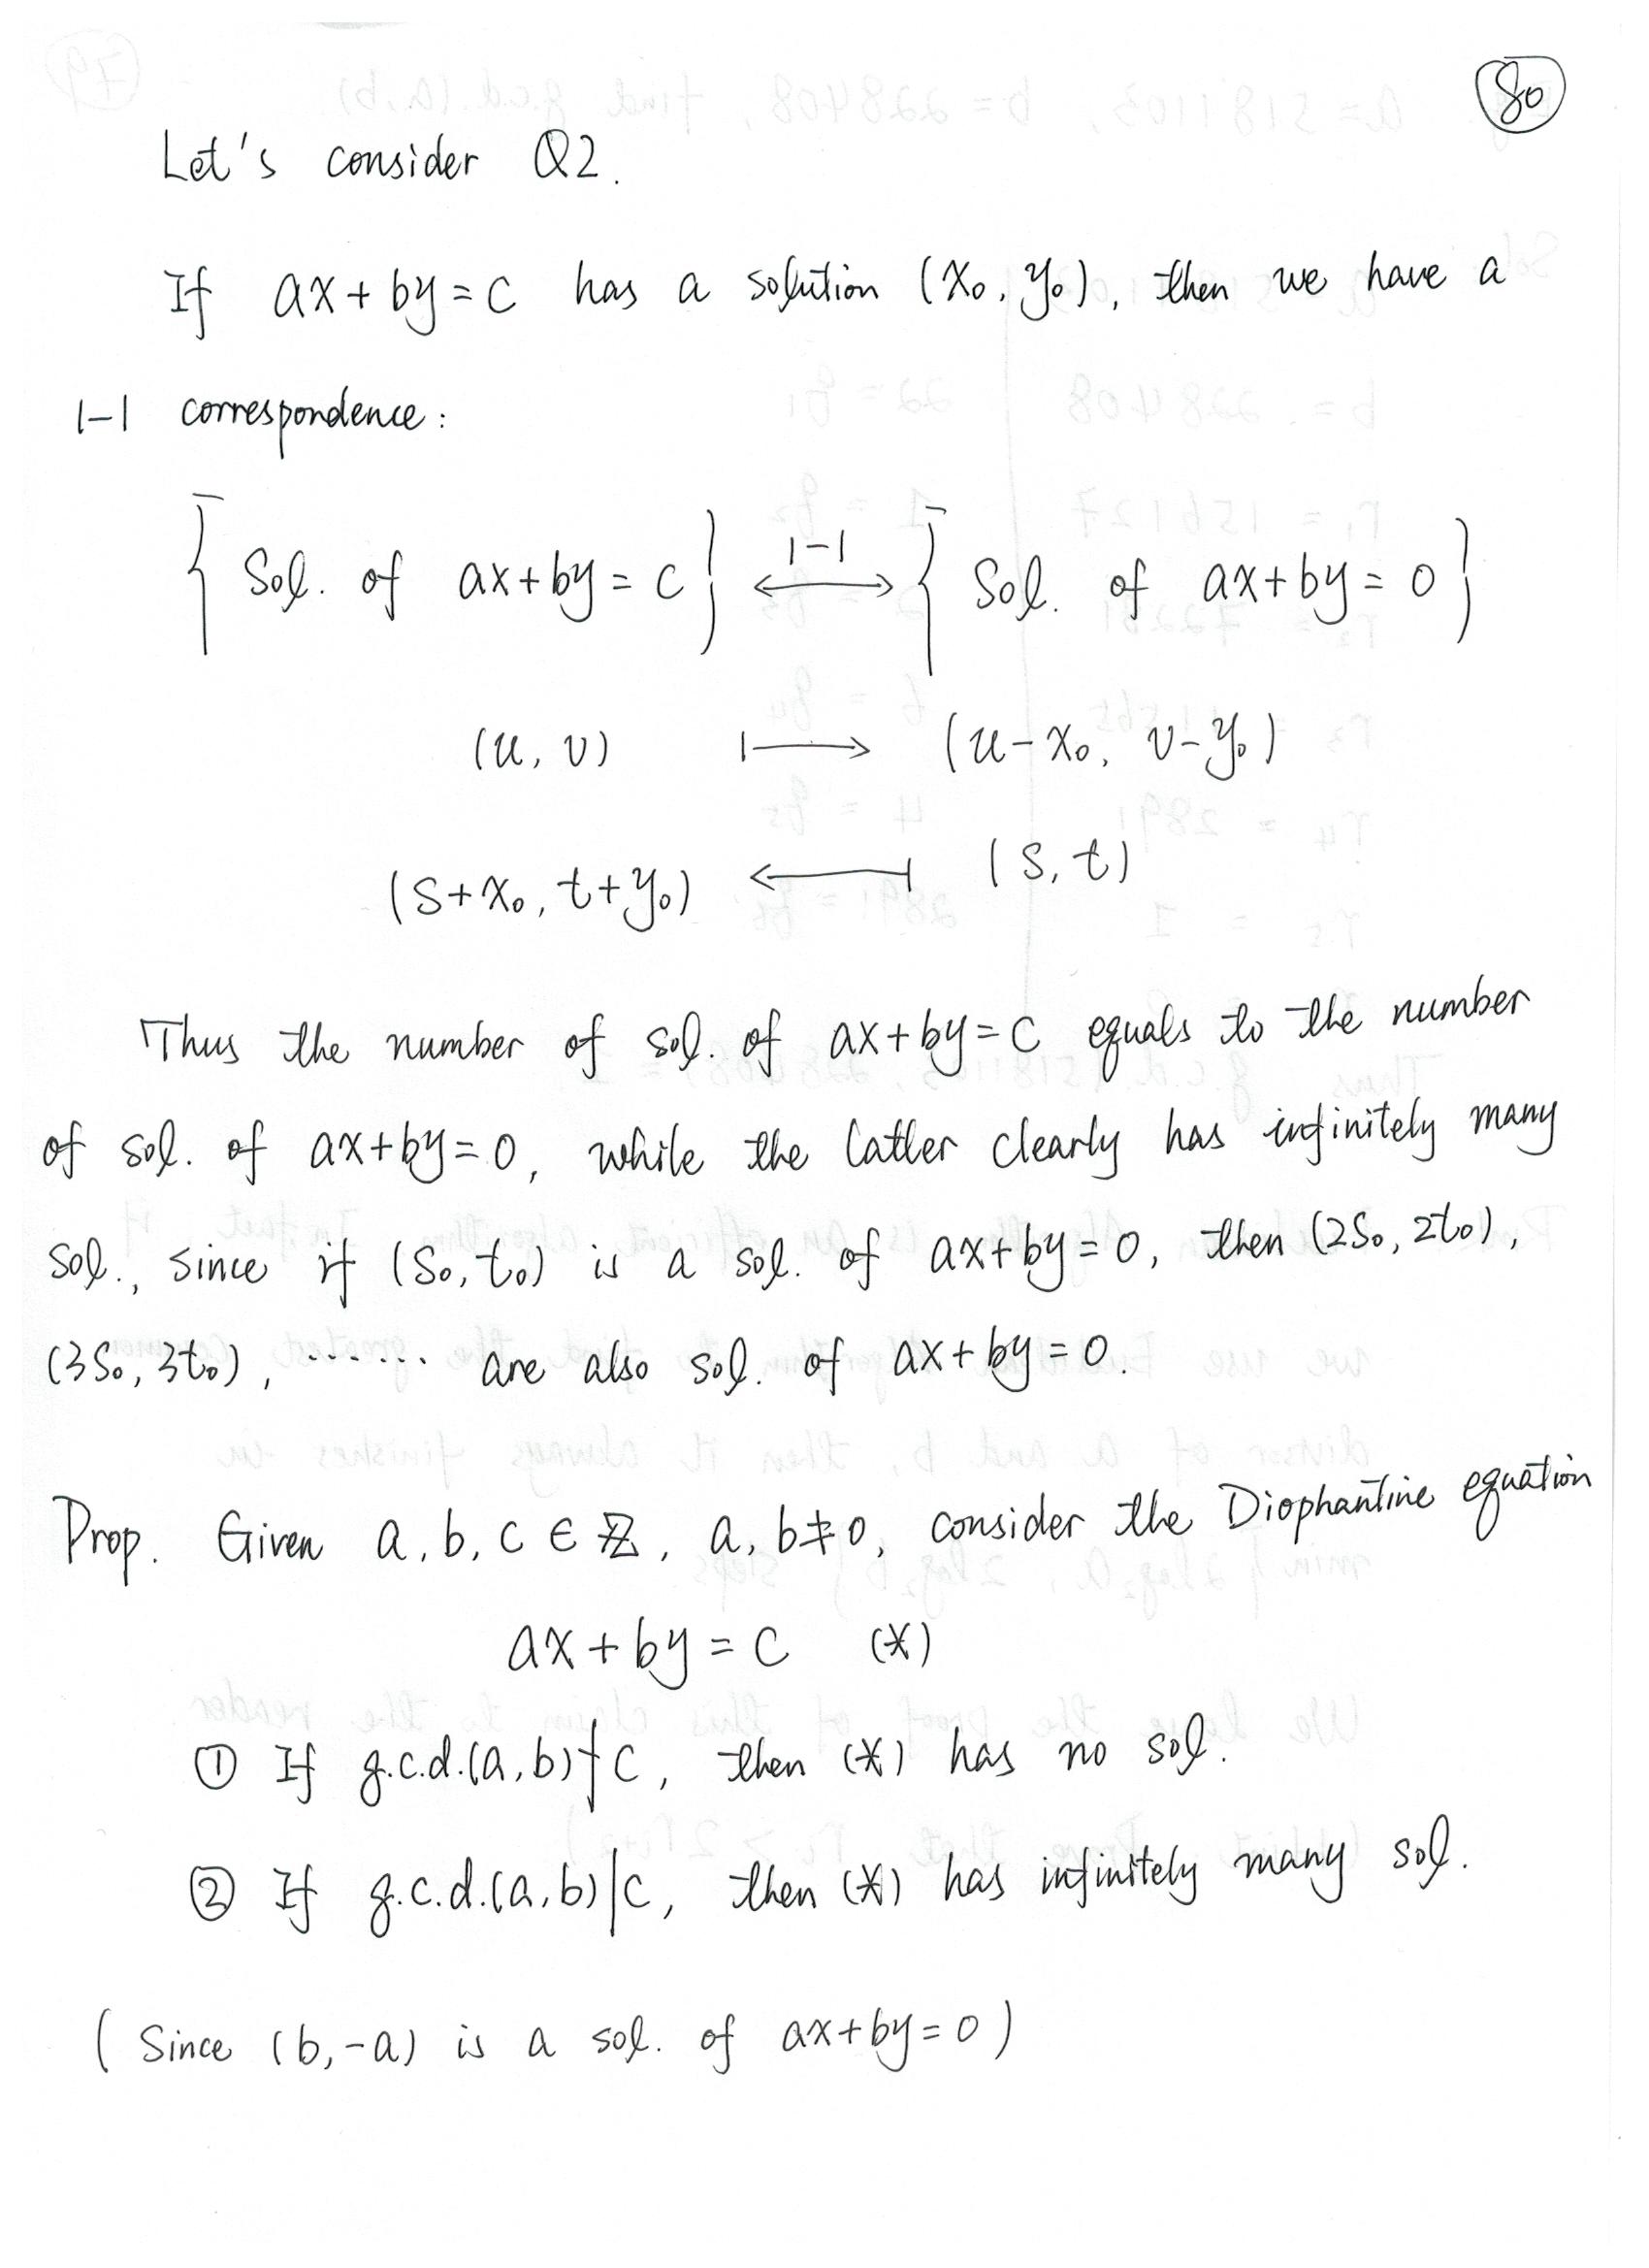 80
Let's consider Q2.
If ax+by=c has a solution (x₀, y₀), then we have a
1-1 correspondence:
{ Sol. of ax+by=c } ⟷ 1-1 { Sol. of ax+by=0 }
(u, v) ⟼ (u-x₀, v-y₀)
(s+x₀, t+y₀) ⟻ (s, t)
Thus the number of sol. of ax+by=c equals to the number
of sol. of ax+by=0, while the latter clearly has infinitely many
sol., since if (s₀, t₀) is a sol. of ax+by=0, then (2s₀, 2t₀),
(3s₀, 3t₀), ······· are also sol. of ax+by=0.
Prop. Given a, b, c ∈ ℤ, a, b≠0, consider the Diophantine equation
ax+by=c (*)
① If g.c.d.(a,b)∤c, then (*) has no sol.
② If g.c.d.(a,b)|c, then (*) has infinitely many sol.
( Since (b,-a) is a sol. of ax+by=0 )